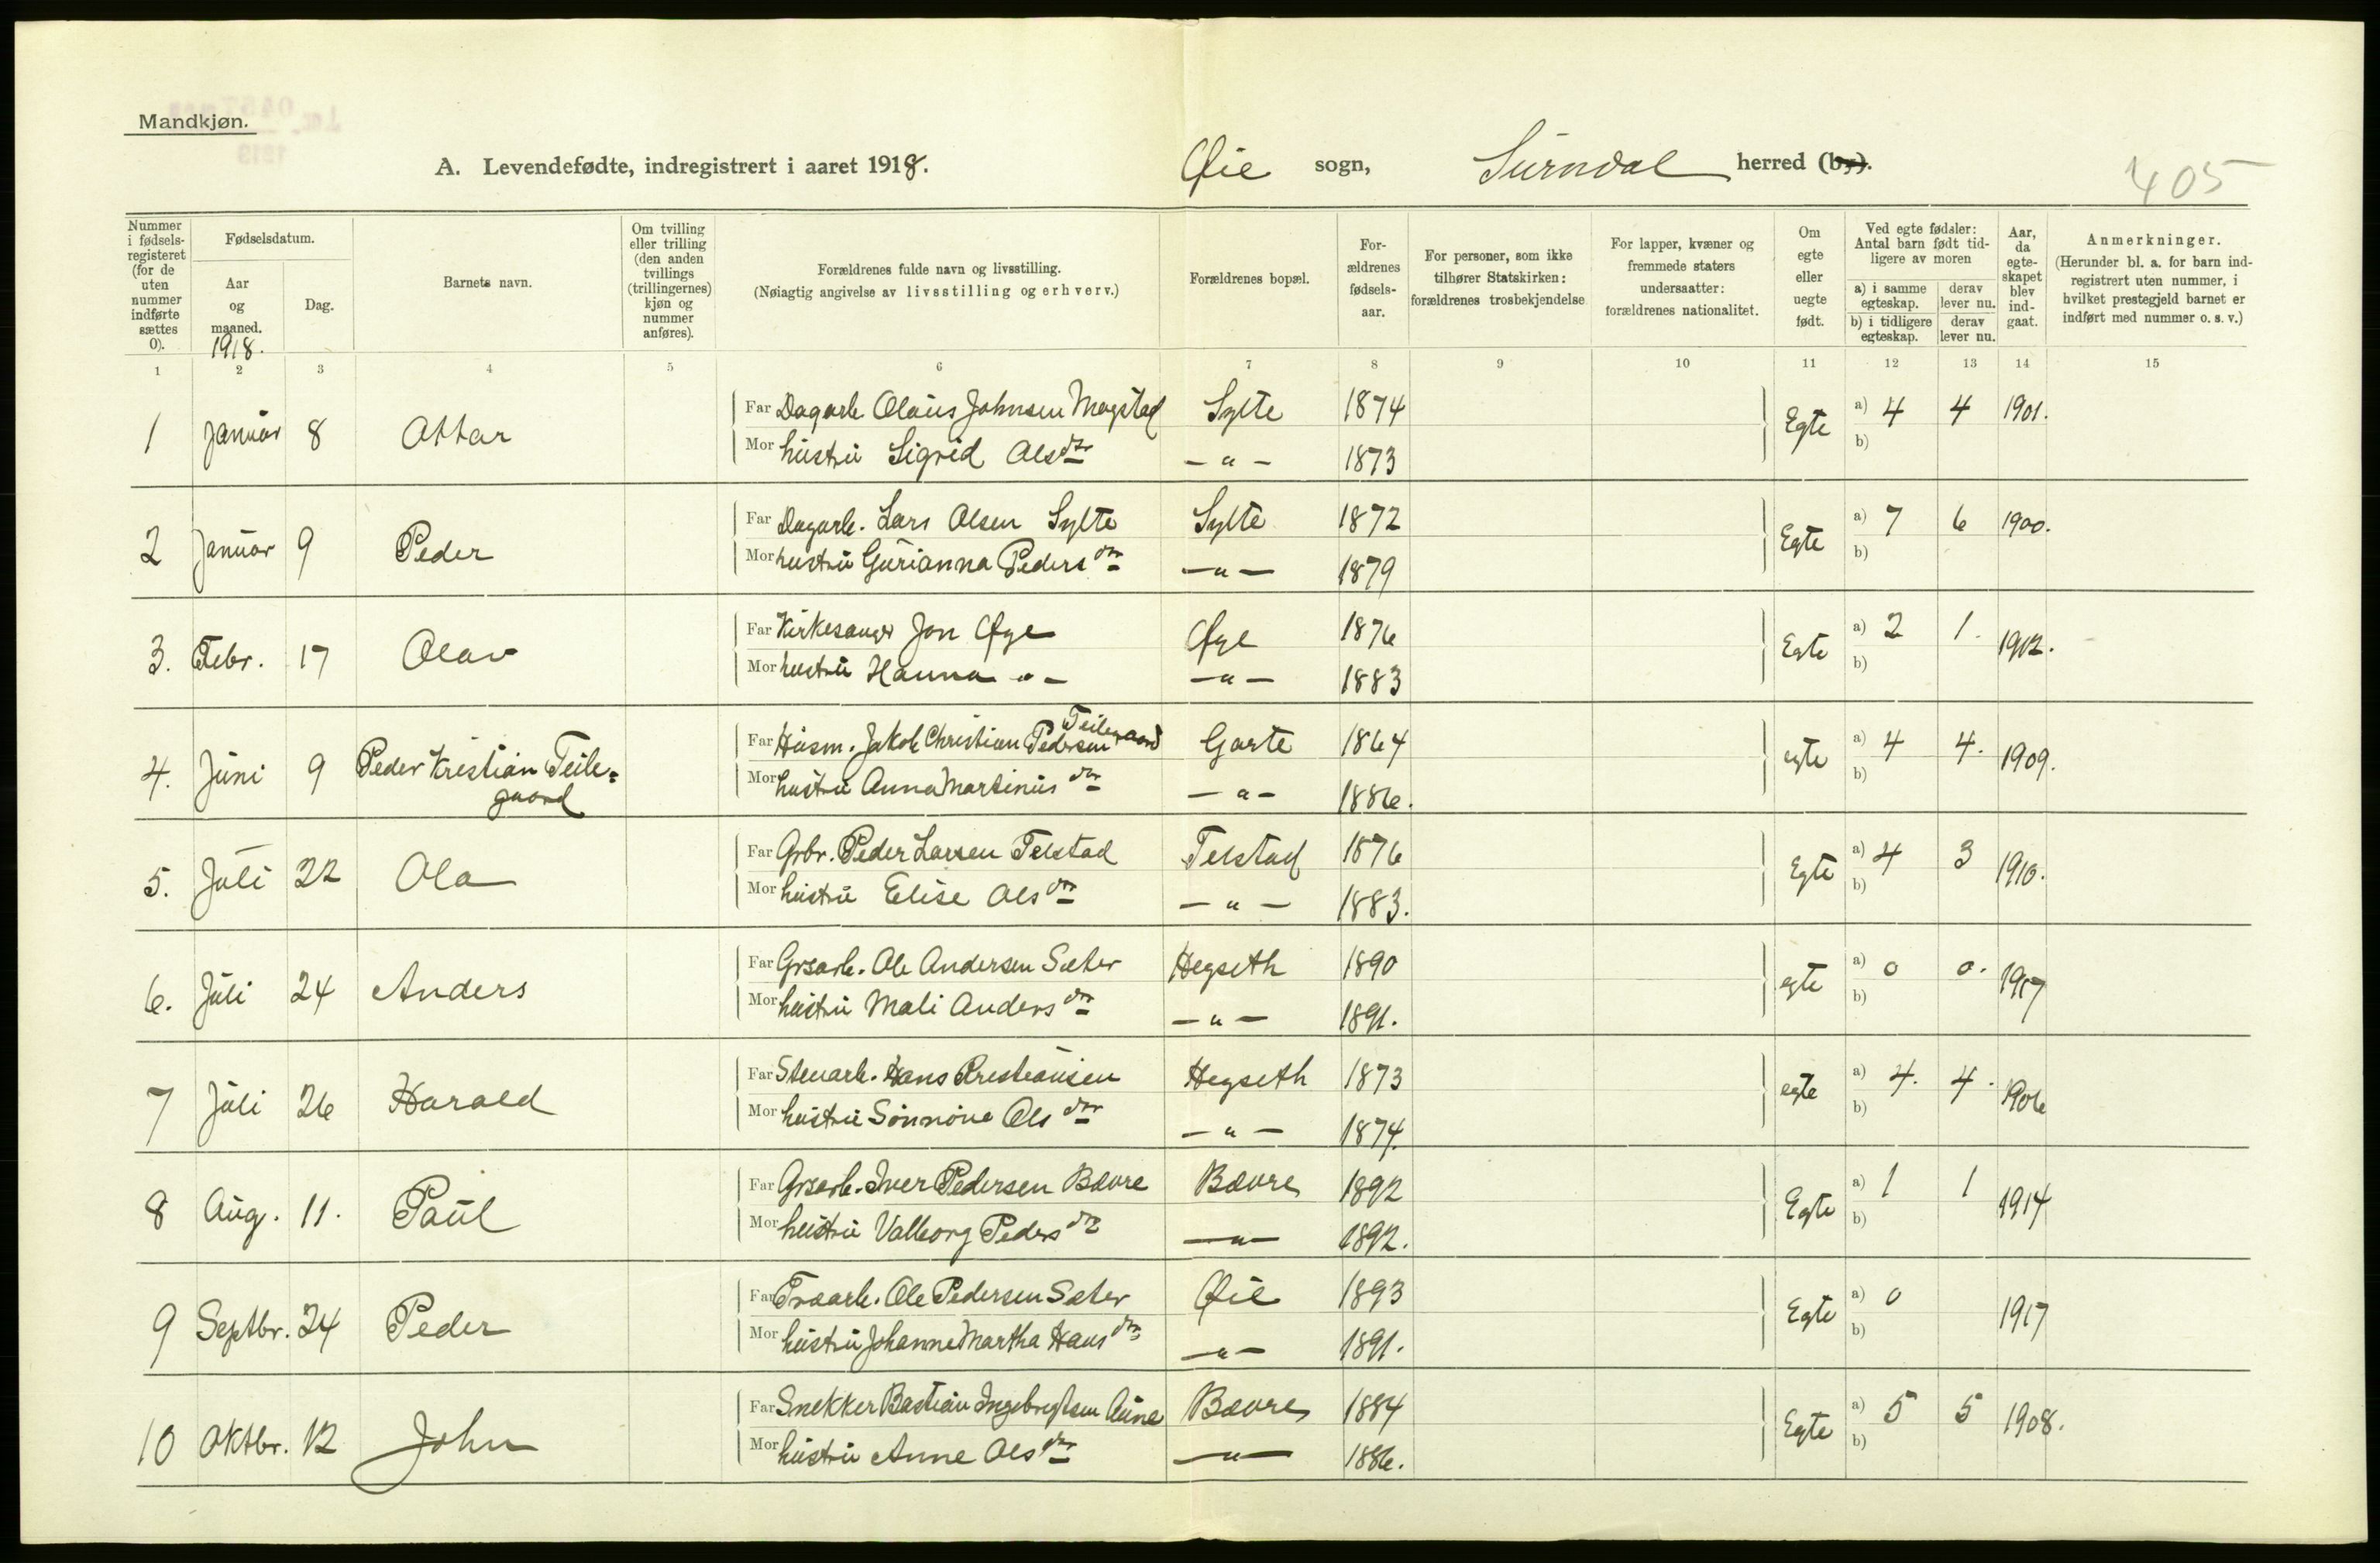 Mandkjøn.
A. Levendefødte, indregistrert i aaret 1918. Øie sogn, Surndal herred (by).
405
Nummer i fødsels-registeret (for de uten nummer indførte sættes 0).
Fødselsdatum.
Aar og maaned.
1918.
Dag.
Barnets navn.
Om tvilling eller trilling (den anden tvillings (trillingernes) kjøn og nummer anføres).
Forældrenes fulde navn og livsstilling.
(Nøiagtig angivelse av livsstilling og erhverv.)
Forældrenes bopæl.
For-ældrenes fødsels-aar.
For personer, som ikke tilhører Statskirken: forældrenes trosbekjendelse
For lapper, kvæner og fremmede staters undersaatter: forældrenes nationalitet.
Om egte eller uegte født.
Ved egte fødsler: Antal barn født tid-ligere av moren
a) i samme egteskap. derav lever nu.
b) i tidligere egteskap. derav lever nu.
Aar, da egte-skapet blev ind-gaat.
Anmerkninger.
(Herunder bl. a. for barn ind-registrert uten nummer, i hvilket prestegjeld barnet er indført med nummer o. s. v.)
1 2 3 4 5 6 7 8 9 10 11 12 13 14 15
1 Januar 8 Ottar Far Dagarb. Olaus Johnsen Mogstad Sylte 1874 Egte a) 4 4 1901.
Mor hustru Sigrid Olsdtr — " — 1873 b)
2 Januar 9 Peder Far Dagarb. Lars Olsen Sylte Sylte 1872 Egte a) 7 6 1900.
Mor hustru Gurianna Pedersdtr — " — 1879 b)
3. Febr. 17 Olav Far Kirkesanger Jon Øye Øye 1876 Egte a) 2 1. 1912.
Mor hustru Hanna — " — — " — 1883 b)
4. Juni 9 Peder Kristian Teile=gaard Far Husm. Jakob Christian Pedersen Teilegaard Garte 1864 egte a) 4 4. 1909.
Mor hustru Anna Martinusdtr — " — 1886. b)
5. Juli 22 Ola Far Grbr. Peder Larsen Telstad Telstad 1876 Egte a) 4 3 1910.
Mor hustru Elise Olsdtr — " — 1883. b)
6. Juli 24 Anders Far Grsarb. Ole Andersen Sæter Hegseth 1890 egte a) 0 0. 1917
Mor hustru Mali Andersdtr — " — 1891. b)
7 Juli 26 Harald Far Stenarb. Hans Kristiansen Hegseth 1873 egte a) 4. 4. 1906
Mor hustru Sönnöve Olsdtr — " — 1874. b)
8 Aug. 11. Paul Far Grsarb. Iver Pedersen Bævre Bævre 1892 Egte a) 1 1 1914
Mor hustru Valborg Pedersdtr — " — 1892. b)
9 Septbr. 24 Peder Far Træarb. Ole Pedersen Sæter Øie 1893 Egte a) 0 1917
Mor hustru Johanne Martha Hansdtr — " — 1891. b)
10 Oktbr. 12 John Far Snekker Bastian Ingebrigtsen Aune Bævre 1884 Egte a) 5 5 1908.
Mor hustru Anne Olsdtr — " — 1886. b)